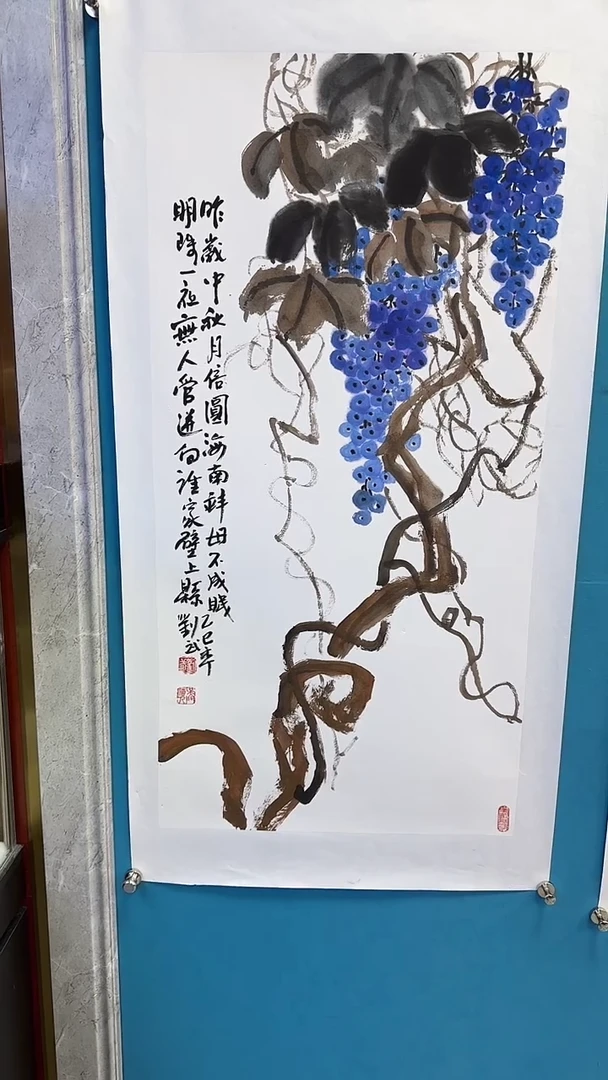 昨歲中秋月倍圓海南蚌母不成賤乙巳年
明珠一夜無人管迸向誰家壁上縣劉